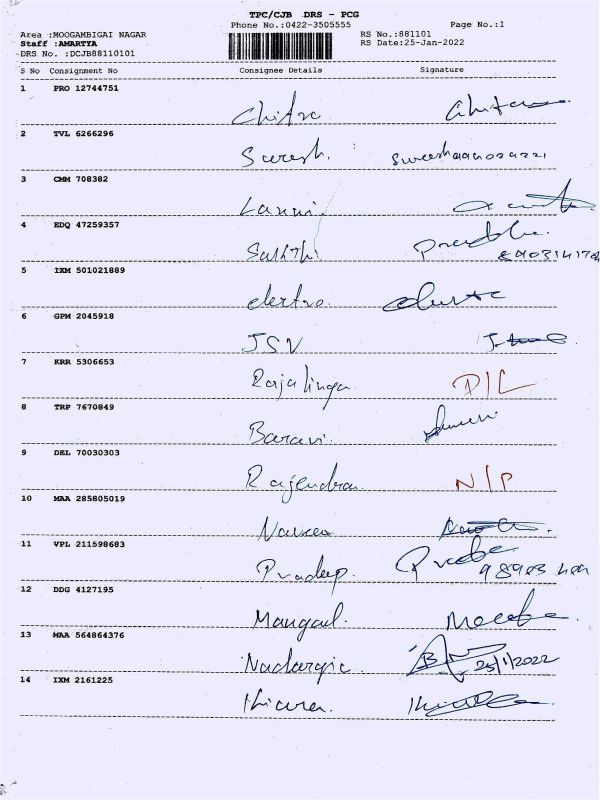 TPC/CJB DRS - PCG
Phone No.:0422-3505555 Page No.:1
Area :MOOGAMBIGAI NAGAR RS No.:881101
Staff :AMARTYA RS Date:25-Jan-2022
DRS No. :DCJB88110101
S No Consignment No Consignee Details Signature
1 PRO 12744751
Chitra Chitra
2 TVL 6266296
Suresh. Suresh
3 CMM 708382
4 EDQ 47259357
Sakthi
5 IXM 501021889
electro
6 GPM 2045918
JSV
7 KRR 5306653
Rajalinga D/L
8 TRP 7670849
Baravi
9 DEL 70030303
Rajendra N/P
10 MAA 285805019
Naveen
11 VPL 211598683
Pradeep.
12 DDG 4127195
Mangal.
13 MAA 564864376
25/1/2022
14 IXM 2161225